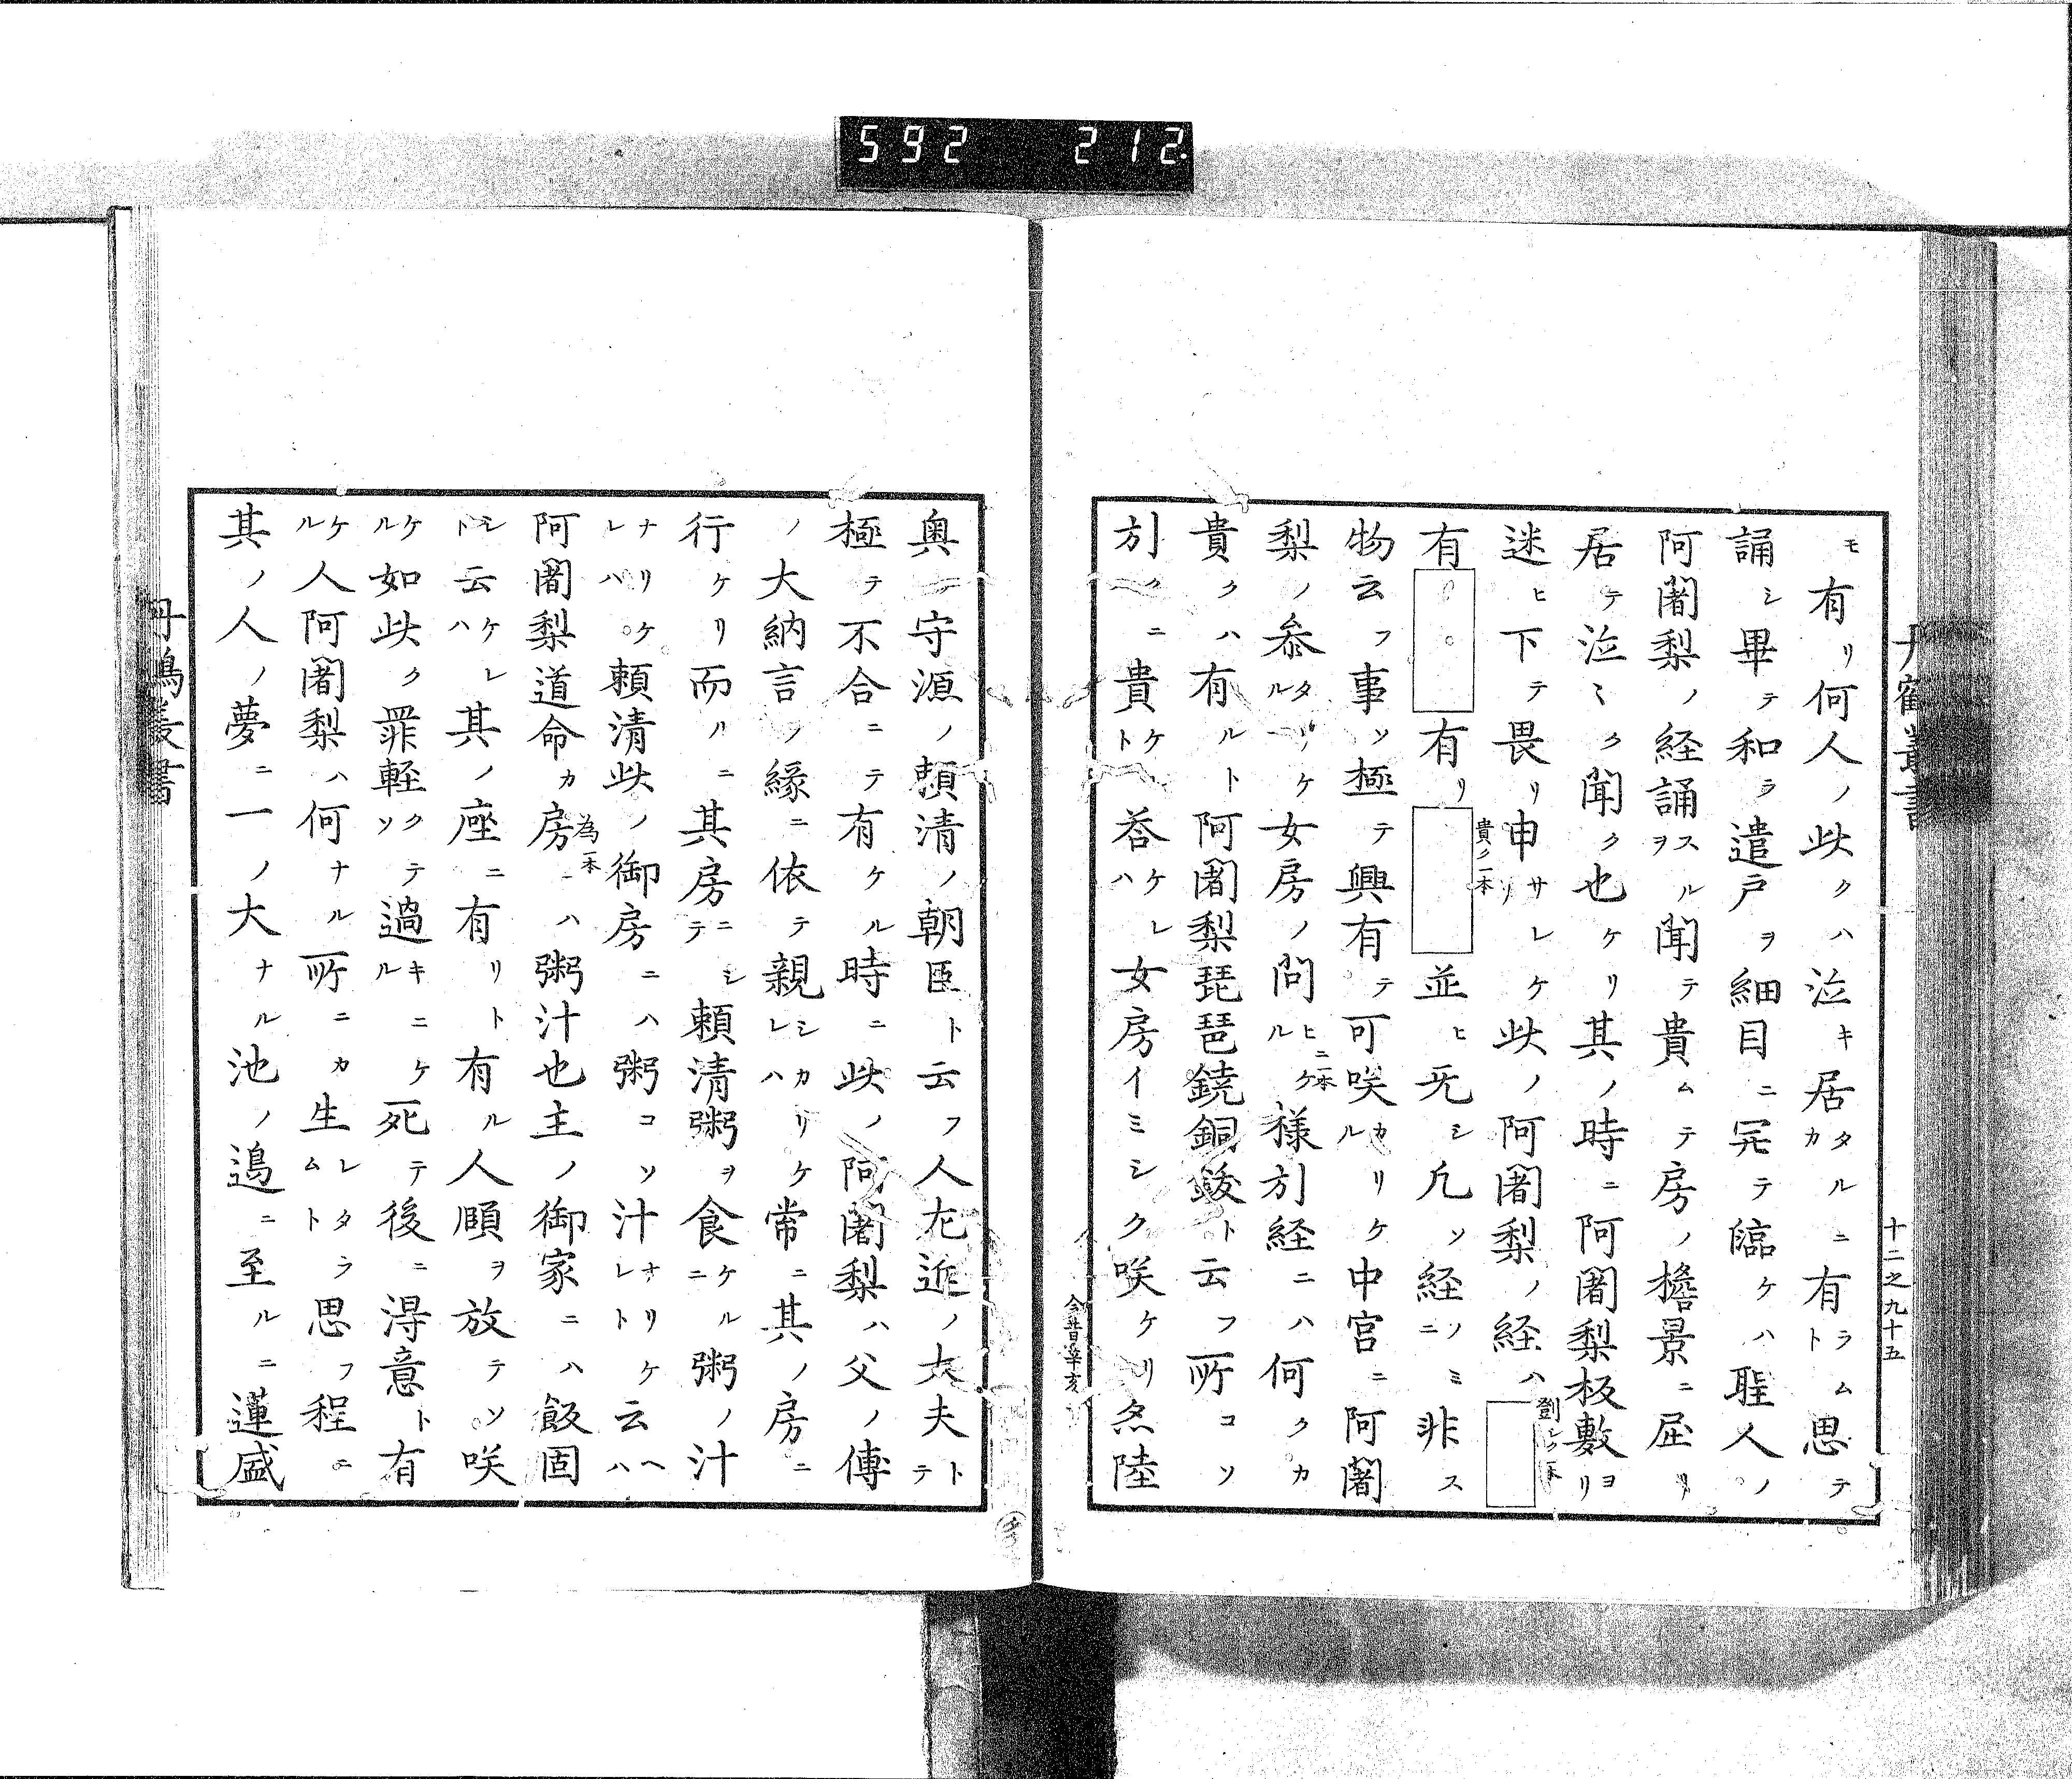 592 212.
十二之九十五
モ有リ何人ノ此クハ泣キ居タルニカ有ラムト思テ
誦シ畢テ和ラ遣戸ヲ細目ニ開テ臨ケハ聖人ノ
阿闍梨ノ経誦スルヲ聞テ貴ムテ房ノ檐景ニ屈リ
居テ泣〻ク聞ク也ケリ其ノ時ニ阿闍梨板敷ヨリ
迷ヒ下テ畏リ申サレケリ此ノ阿闍梨ノ経ハ
有 有リ 並ヒ旡シ凡ソ経ニソノミ非ス
貴ク一本
物云フ事ソ極テ興有テ可咲カリケル中宮ニ阿闍
梨ノ参タリケルニ女房ノ問ヒケル様方経ニハ何クカ
貴クハ有ルト阿闍梨琵琶鐃銅鈸ト云フ所コソ
方クニ貴ケト荅ケレハ女房イミシク咲ケリ亦陸
今昔辛亥
奥ノ守源ノ頼清ノ朝臣ト云フ人尢近ノ大夫トテ
極テ不合ニテ有ケル時ニ此ノ阿闍梨ハ父ノ傅
ノ大納言ノ縁ニ依テ親シカリケレハ常ニ其ノ房ニ
行ケリ而ルニ其房ニシテ頼清粥ヲ食ケルニ粥ノ汁
ナリケレハ頼清此ノ御房ニハ粥コソ汁ナリケレト云ヘハ
阿闍梨道命カ房ハ粥汁也主ノ御家ニハ飯固
為一本
シト云ケレハ其ノ座ニ有リト有ル人頤ヲ放テソ咲
ケル如此ク罪軽クテソ過キニケル死テ後ニ得意ト有
ケル人阿闍梨ハ何ナル所ニカ生レタラムト思フ程ニ
其ノ人ノ夢ニ一ノ大ナル池ノ邉ニ至ルニ蓮盛